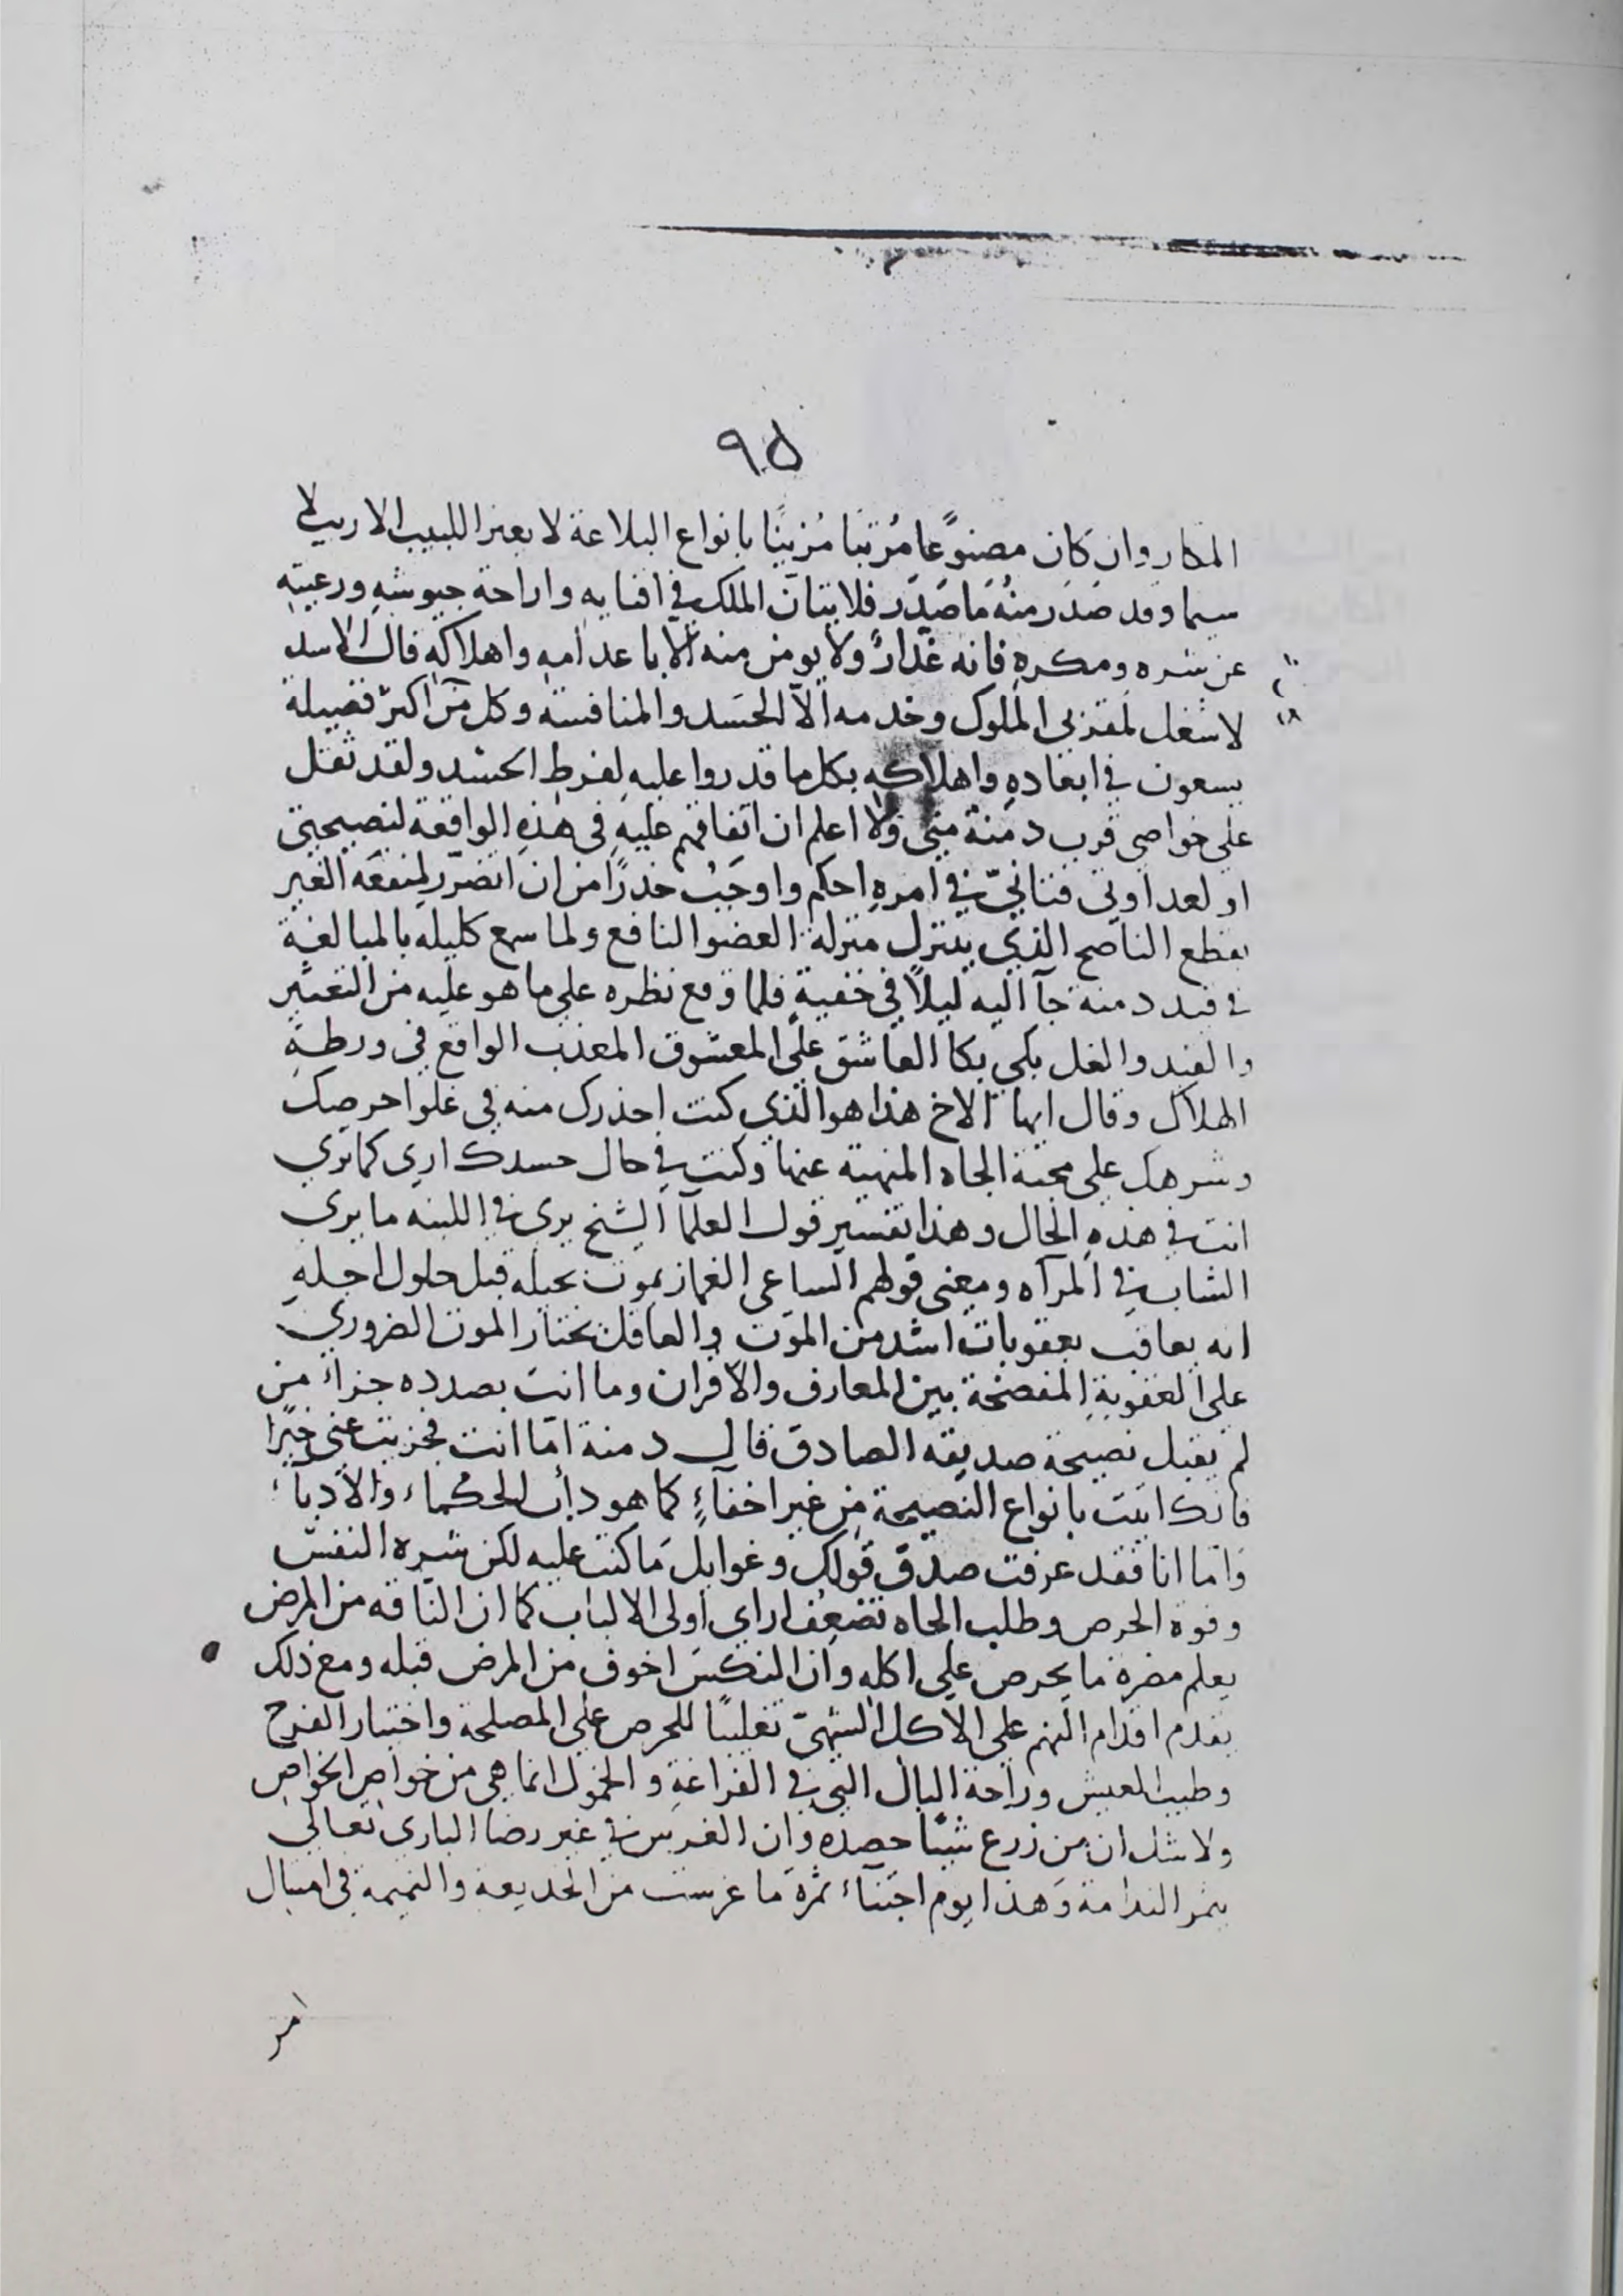 ٩٥
المكار وان كان مصنوعًا مُرتبا مُزينًا بانواع البلاغة لا يعتر اللبيب الاريب لا
سيما وقد صَدَر منهُ مَا صَدَر فلا يتان الملك في افنايه واراحة جيوشهِ ورعيتهِ
عن شره ومكرهِ فانه غدارٌ ولا يومن منه الا باعدامهِ واهلاكهِ قال الاسد
لا شغل لمقربي الملوك وخدمه الّا الحَسَد والمنافسة وكل من اكثر فضيلة
يسعون في ابعادهِ واهلاكه بكل ما قدروا عليهِ لفرط الحسد ولقد ثقل
على خواصي قرب دمنة مني ولا اعلم ان اتفاقهم عليهِ في هذهِ الواقعة لنصيحتي
او لعداوتي فتانيّ في امرهِ احكم واوجَبُ حذرًا من ان اتضرّر لمنفعَه الغير
بقطع الناصح الذي يتنزل منزلة العضو النافع ولما سمع كليله بالمبالغة
في قيد دمنه جآ اليه ليلًا في خفيةٍ فلما وقع نظره على ما هو عليه من التغيّر
والقيد والغل بكي بكا العاشق على المعشوق المعذب الواقع في ورطةِ
الهلاك وقال ايها الاخ هذا هو الذي كنت احذرك منه في غلوا حرصك
وشرهك على محبّة الجاه المنهية عنها وكنت في حال حسدك اري كما تري
انت في هذهِ الحال وهذا تفسير قول العلمآ الشيخ يرى في اللبنه ما يرى
الشاب في المرآه ومعنى قولهم الساعى الغماز يموت بحيله قبل حلول اجلهِ
انه يعاقب بعقوبات اشد من الموت والعاقل يختار الموت الضروري
على العقوبةِ المفضحة بين المعارف والاقران وما انت بصدده جزاء من
لم يقبل نصيحة صديقه الصادق قال دمنة امّا انت فجزيت عني خيرًا
فانك اتيت بانواع النصيحة من غير اخفآءٍ كما هو دأب الحكماء والادباء
وَامّا انا فقد عرفت صدق قولك وغوايل مَا كنت عليه لكن شره النفس
وقوة الحرص وطلب الجاه تضعِف اراي اولى الالباب كما ان النّاقه من المرض
يعلم مضرة ما يحرص على اكله وان النكسَ اخوف من المرض قبله ومع ذلك
يقدم اقدام النهم على الاكل الشهيّ تغليبًا للحرص على المصلحة واختيار الفرح
وطيب العيش وراحة البال التي في الفراغةِ والخمول انما هي من خواص الخواص
ولا شك ان من زرع شيئًا حصده وان الغرس في غير رضا البارى تعالى
يثمر الندامة وَهذا يوم اجتنآء ثمرة مَا غرست من الخديعة والنميمه في امثال
امر